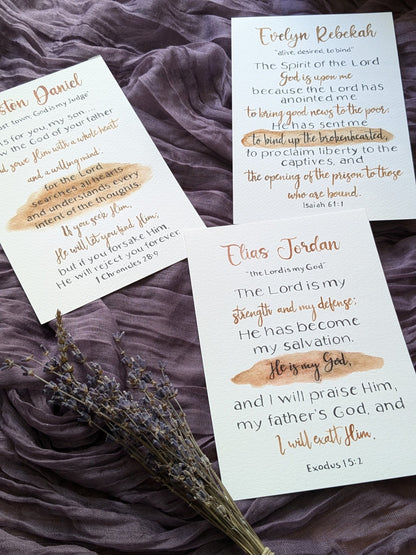 ston Daniel
town, God is my Judge"
for you, my son
the God of your father
serve Him with a whole heart
and a willing mind
for the Lord
searches all hearts
and understands every
intent of the thoughts.
If you seek Him,
He will let you find Him;
but if you forsake Him,
He will reject you forever.
1 Chronicles 28:9
Evelyn Rebekah
"alive, desired, to bind"
The Spirit of the Lord
God is upon me
because the Lord has
anointed me
to bring good news to the poor;
He has sent me
to bind up the brokenhearted,
to proclaim liberty to the
captives, and
the opening of the prison to those
who are bound.
Isaiah 61:1
Elias Jordan
"the Lord is my God"
The Lord is my
strength and my defense;
He has become
my salvation.
He is my God,
and I will praise Him,
my father's God, and
I will exalt Him.
Exodus 15:2